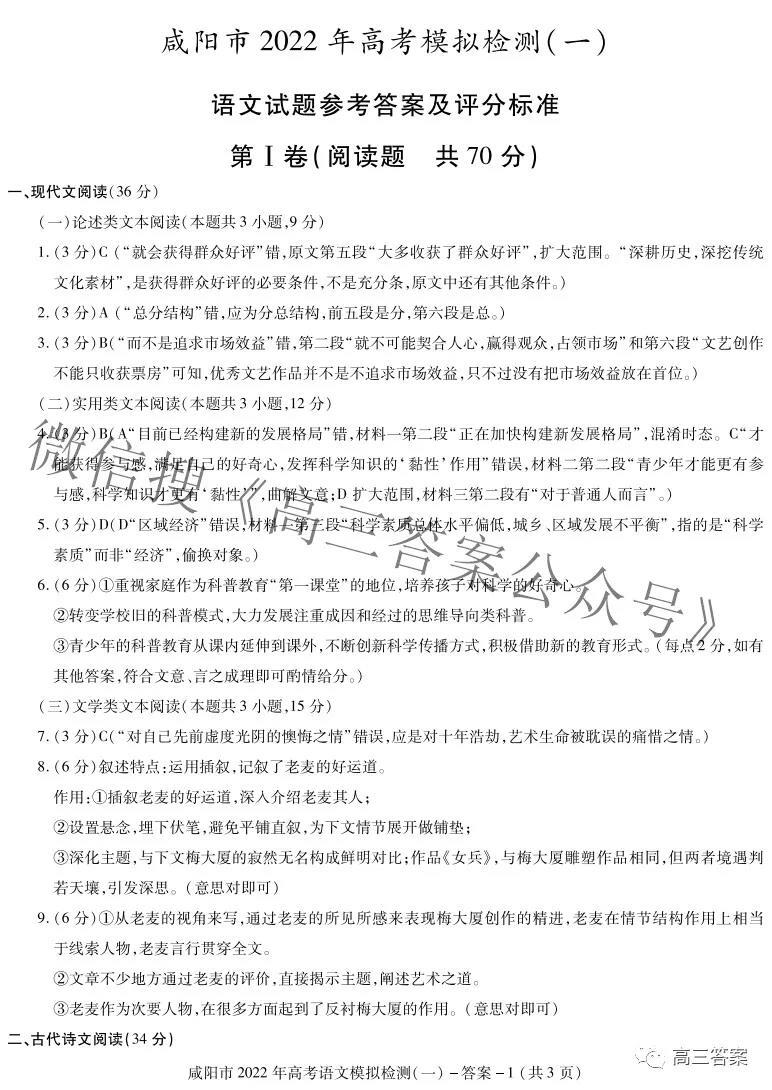 咸阳市 2022 年高考模拟检测(一)
语文试题参考答案及评分标准
第Ⅰ卷(阅读题 共 70 分)
一、现代文阅读(36 分)
(一)论述类文本阅读(本题共 3 小题,9 分)
1.(3 分)C(“就会获得群众好评”错,原文第五段“大多收获了群众好评”,扩大范围。“深耕历史,深挖传统
文化素材”,是获得群众好评的必要条件,不是充分条,原文中还有其他条件。)
2.(3 分)A(“总分结构”错,应为分总结构,前五段是分,第六段是总。)
3.(3 分)B(“而不是追求市场效益”错,第二段“就不可能契合人心,赢得观众,占领市场”和第六段“文艺创作
不能只收获票房”可知,优秀文艺作品并不是不追求市场效益,只不过没有把市场效益放在首位。)
(二)实用类文本阅读(本题共 3 小题,12 分)
4.(3 分)B(A“目前已经构建新的发展格局”错,材料一第二段“正在加快构建新发展格局”,混淆时态。C“才
能获得参与感,满足自己的好奇心,发挥科学知识的‘黏性’作用”错误,材料二第二段“青少年才能更有参
与感,科学知识才更有‘黏性’”,曲解文意;D 扩大范围,材料三第二段有“对于普通人而言”。)
5.(3 分)D(D“区域经济”错误,材料一第三段“科学素质总体水平偏低,城乡、区域发展不平衡”,指的是“科学
素质”而非“经济”,偷换对象。)
6.(6 分)①重视家庭作为科普教育“第一课堂”的地位,培养孩子对科学的好奇心。
②转变学校旧的科普模式,大力发展注重成因和经过的思维导向类科普。
③青少年的科普教育从课内延伸到课外,不断创新科学传播方式,积极借助新的教育形式。(每点 2 分,如有
其他答案,符合文意、言之成理即可酌情给分。)
(三)文学类文本阅读(本题共 3 小题,15 分)
7.(3 分)C(“对自己先前虚度光阴的懊悔之情”错误,应是对十年浩劫,艺术生命被耽误的痛惜之情。)
8.(6 分)叙述特点:运用插叙,记叙了老麦的好运道。
作用:①插叙老麦的好运道,深入介绍老麦其人;
②设置悬念,埋下伏笔,避免平铺直叙,为下文情节展开做铺垫;
③深化主题,与下文梅大厦的寂然无名构成鲜明对比;作品《女兵》,与梅大厦雕塑作品相同,但两者境遇判
若天壤,引发深思。(意思对即可)
9.(6 分)①从老麦的视角来写,通过老麦的所见所感来表现梅大厦创作的精进,老麦在情节结构作用上相当
于线索人物,老麦言行贯穿全文。
②文章不少地方通过老麦的评价,直接揭示主题,阐述艺术之道。
③老麦作为次要人物,在很多方面起到了反衬梅大厦的作用。(意思对即可)
二、古代诗文阅读(34 分)
咸阳市 2022 年高考语文模拟检测(一)-答案-1(共 3 页)
微信搜《高三答案公众号》
高三答案